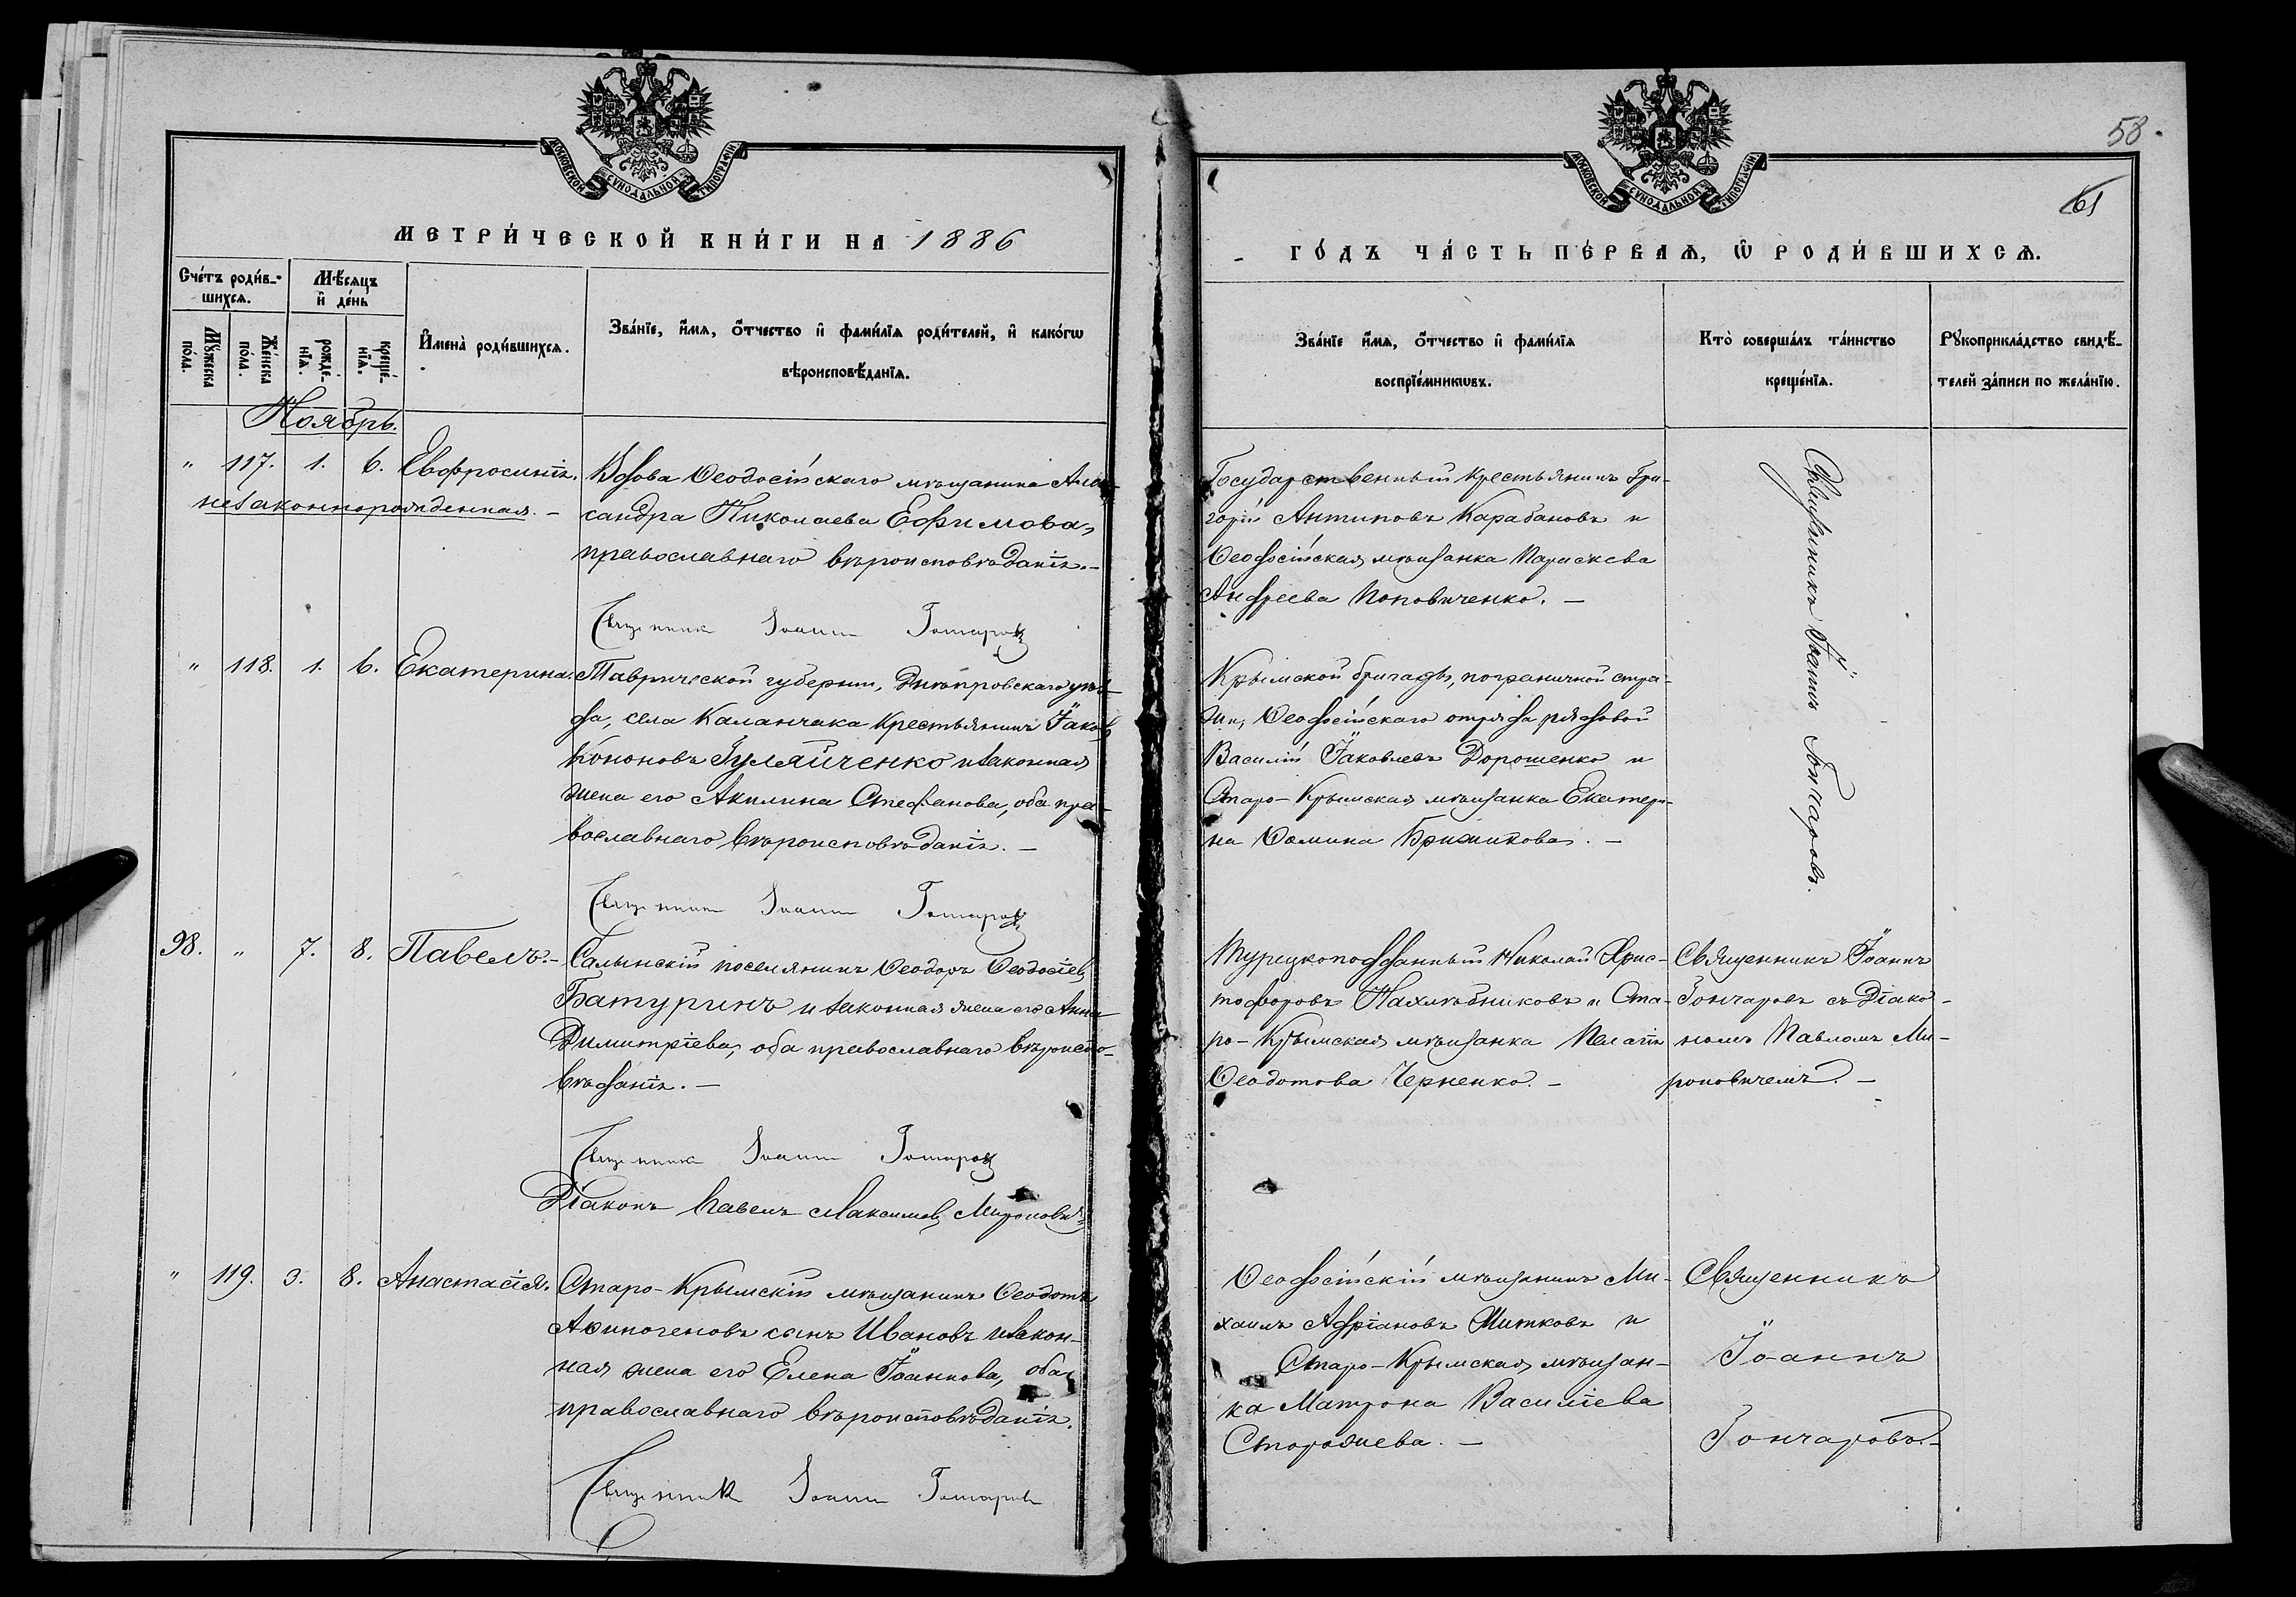 МОСКОВСКОЙ СУНОДАЛЬНОЙ ТИПОГРАФІИ
МЕТРИ́ЧЕСКОЙ КНИ́ГИ НА 1886
Сче́тъ роди́в-
шихсѧ.
Мѣ́сѧцъ
и҆ де́нь
Мꙋ́жеска
по́ла.
Же́нска
по́ла.
рожде́-
нїѧ.
креще́-
нїѧ.
И҆мена̀ роди́вшихсѧ.
Зва́нїе, и҆́мѧ, ѻ҆́тчество и҆ фами́лїѧ роди́телей, и҆ како́гѡ
вѣроисповѣ́данїѧ.
Ноябрь.
" 117. 1. 6. Евфросинія.
незаконнорожденная. –
Вдова Ѳеодосійскаго мѣщанина Алек-
сандра Николаева Ефимова,
православнаго вѣроисповѣданія. –
Священникъ Іоаннъ Гончаровъ
" 118. 1. 6. Екатерина.
Таврической губерніи, Днѣпровскаго уѣз-
да, села Каланчака крестьянинъ Іаковъ
Кононовъ Гуляйченко и законная
жена его Акилина Стефанова, оба пра-
вославнаго вѣроисповѣданія. –
Священникъ Іоаннъ Гончаровъ
98. " 7. 8. Павелъ. –
Салынскій поселянинъ Ѳеодоръ Ѳеодосіевъ
Батуринъ и законная жена его Анна
Димитріева, оба православнаго вѣроиспо-
вѣданія. –
Священникъ Іоаннъ Гончаровъ
Діаконъ Павелъ Максимовъ Мироновичъ
" 119. 3. 8. Анастасія.
Старо-Крымскій мѣщанинъ Ѳеодотъ
Аѳиногеновъ сынъ Ивановъ и закон-
ная жена его Елена Іоаннова, оба
православнаго вѣроисповѣданія.
Священникъ Іоаннъ Гончаровъ
58.
61
МОСКОВСКОЙ СУНОДАЛЬНОЙ ТИПОГРАФІИ
ГО́ДЪ ЧА́СТЬ ПЕ́РВАѦ, Ѡ҆ РОДИ́ВШИХСѦ.
Зва́нїе и҆́мѧ, ѻ҆́тчество и҆ фами́лїѧ
воспрїе́мникѡвъ.
Кто̀ соверша́лъ та́инство
креще́нїѧ.
Рꙋкоприкла́дство свидѣ́-
телей за́писи по жела́нїю.
Государственный крестьянинъ Гри-
горій Антиповъ Карабановъ и
Ѳеодосійская мѣщанка Параскева
Андреева Поповиченко. –
Священникъ Іоаннъ Гончаровъ.
Крымской бригады, пограничной стра-
жи, Ѳеодосійскаго отряда рядовой
Василій Іаковлевъ Дорошенко и
Старо-Крымская мѣщанка Екатери-
на Ѳомина Брижикова. –
Турецкоподданный Николай Хрис-
тофоровъ Нахлѣбниковъ и Ста-
ро-Крымская мѣщанка Пелагія
Ѳеодотова Черненко. –
Священникъ Іоаннъ
Гончаровъ съ Діако-
номъ Павломъ Ми-
роновичемъ. –
Ѳеодосійскій мѣщанинъ Ми-
хаилъ Адріановъ Шитковъ и
Старо-Крымская мѣщан-
ка Матрона Василіева
Сторожева. –
Священникъ
Іоаннъ
Гончаровъ. –